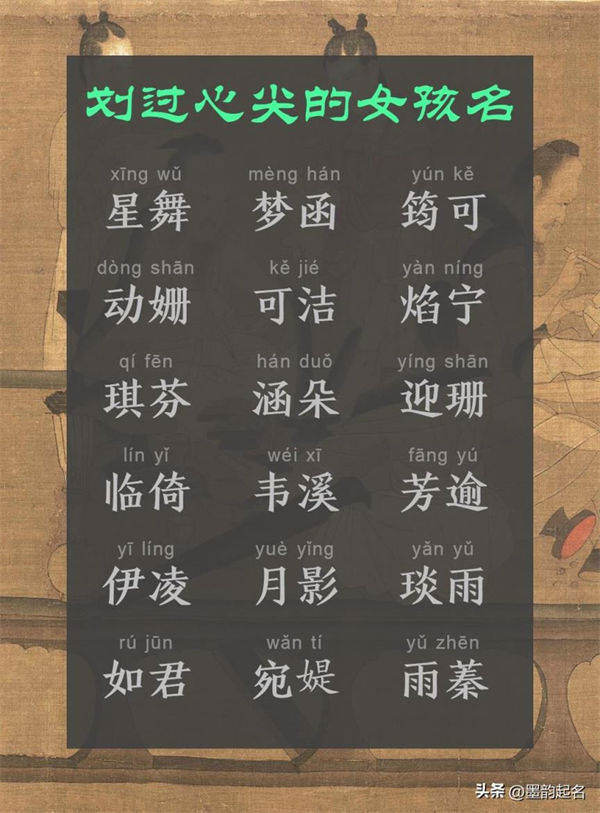 划过心尖的女孩名
xīng wǔ mèng hán yún kě
星舞 梦函 筠可
dòng shān kě jié yàn níng
动姗 可洁 焰宁
qí fēn hán duǒ yíng shān
琪芬 涵朵 迎珊
lín yǐ wéi xī fāng yú
临倚 韦溪 芳逾
yī líng yuè yǐng yǎn yǔ
伊凌 月影 琰雨
rú jūn wǎn tí yǔ zhēn
如君 宛媞 雨蓁
头条 @墨韵起名